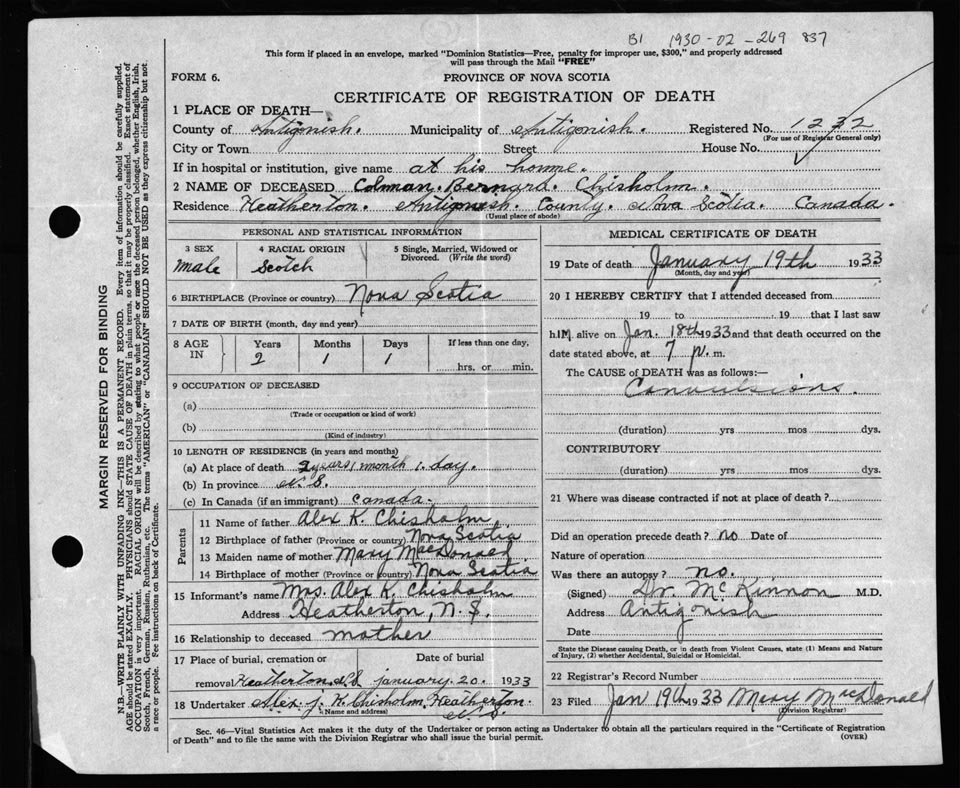 B1 1930-02-269 837
This form if placed in an envelope, marked "Dominion Statistics—Free, penalty for improper use, $300," and properly addressed
will pass through the Mail "FREE"
FORM 6.
PROVINCE OF NOVA SCOTIA
CERTIFICATE OF REGISTRATION OF DEATH
1 PLACE OF DEATH—
County of Antigonish. Municipality of Antigonish. Registered No. 1232
(For use of Registrar General only)
City or Town Street House No.
If in hospital or institution, give name at his home.
2 NAME OF DECEASED Colman. Bernard. Chisholm.
Residence Heatherton. Antigonish. County. Nova Scotia. Canada.
(Usual place of abode)
PERSONAL AND STATISTICAL INFORMATION
3 SEX 4 RACIAL ORIGIN 5 Single, Married, Widowed or
Divorced. (Write the word)
male Scotch
6 BIRTHPLACE (Province or country) Nova Scotia
7 DATE OF BIRTH (month, day and year)
8 AGE Years Months Days If less than one day,
IN 2 1 1 hrs. or min.
9 OCCUPATION OF DECEASED
(a)
(Trade or occupation or kind of work)
(b)
(Kind of industry)
10 LENGTH OF RESIDENCE (in years and months)
(a) At place of death 2 years 1 month 1. day.
(b) In province N.S.
(c) In Canada (if an immigrant) Canada.
Parents
11 Name of father Alex K. Chisholm
12 Birthplace of father (Province or country) Nova Scotia
13 Maiden name of mother Mary MacDonald
14 Birthplace of mother (Province or country) Nova Scotia
15 Informant's name Mrs. Alex K. Chisholm
Address Heatherton, N.S.
16 Relationship to deceased mother
17 Place of burial, cremation or Date of burial
removal Heatherton N.S. january. 20. 1933
18 Undertaker Alex. J. K. Chisholm, Heatherton.
(Name and address) N.S.
MEDICAL CERTIFICATE OF DEATH
19 Date of death January 19th 1933
(Month, day and year)
20 I HEREBY CERTIFY that I attended deceased from
19 to , 19 that I last saw
him alive on Jan. 18th 1933 and that death occurred on the
date stated above, at 7 p. m.
The CAUSE of DEATH was as follows:—
Convulsions.
(duration) yrs mos dys.
CONTRIBUTORY
(duration) yrs mos dys.
21 Where was disease contracted if not at place of death?
Did an operation precede death? no Date of
Nature of operation
Was there an autopsy? no.
(Signed) Dr. McKinnon M.D.
Address Antigonish
Date
State the Disease causing Death, or in death from Violent Causes, state (1) Means and Nature
of Injury, (2) whether Accidental, Suicidal or Homicidal.
22 Registrar's Record Number
23 Filed Jan 19th 1933 Mary MacDonald
(Division Registrar)
Sec. 46—Vital Statistics Act makes it the duty of the Undertaker or person acting as Undertaker to obtain all the particulars required in the "Certificate of Registration
of Death" and to file the same with the Division Registrar who shall issue the burial permit. (OVER)
MARGIN RESERVED FOR BINDING
N.B.—WRITE PLAINLY WITH UNFADING INK—THIS IS A PERMANENT RECORD. Every item of information should be carefully supplied.
AGE should be stated EXACTLY. PHYSICIANS should STATE CAUSE OF DEATH in plain terms, so that it may be properly classified. Exact statement of
OCCUPATION is very important. RACIAL ORIGIN will be described by stating to what people or race the deceased person belonged, whether English, Irish,
Scotch, French, German, Russian, Ruthenian, etc. The terms "AMERICAN" or "CANADIAN" SHOULD NOT BE USED as they express citizenship but not
a race or people. See instructions on back of Certificate.